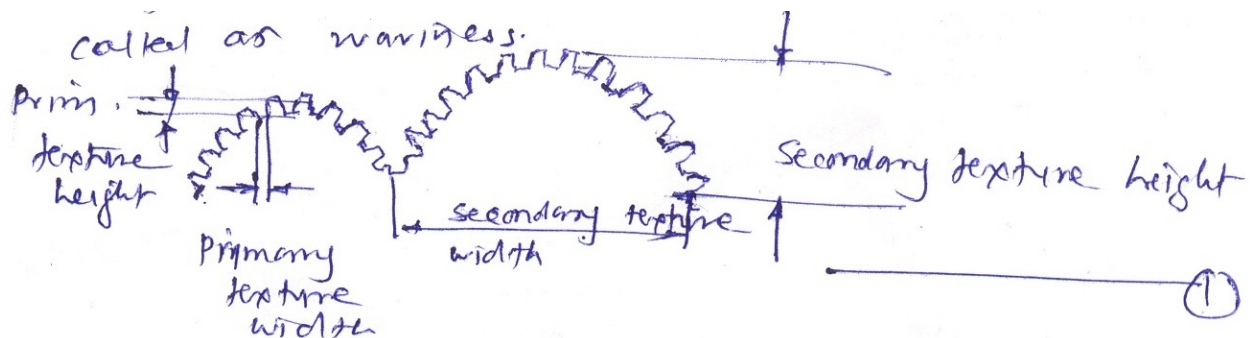 called as waviness.
Prim.
texture
height
Primary
texture
width
secondary texture
width
secondary texture height
1